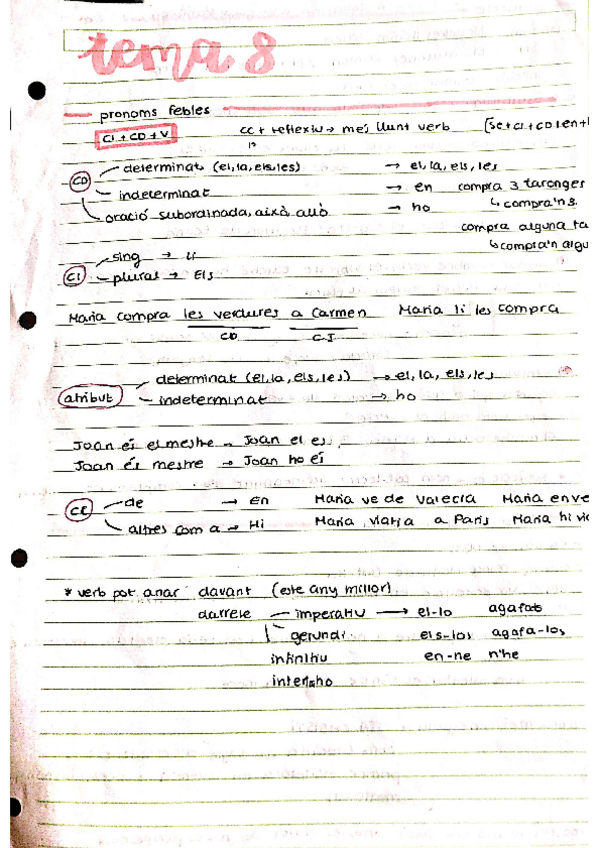 tema 8
pronoms febles
CI + CD + V
CC + reflexiu → més lluny verb [se + CI + CD
CD
determinat (el, la, els, les) → el, la, els, les
indeterminat → en compra 3 taronges
↳ compra'n 3.
oració subordinada, això, allò → ho
compra alguna ta
↳ compra'n algu
CI
sing → li
plural → Els
Maria compra les verdures a Carmen Maria li les compra
CD C.I
atribut
determinat (el, la, els, les) → el, la, els, les
indeterminat → ho
Joan és el mestre → Joan el és
Joan és mestre → Joan ho és
de → En Maria ve de Valecia Maria en ve
altres com a → Hi Maria viatja a París Maria hi via
* verb pot anar davant (este any millor)
darrere imperatiu → el-lo
gerundi els-los agafa-los
infinitiu en-ne n'he